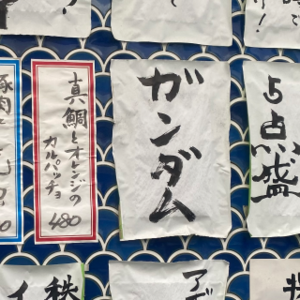 5点盛
ガンダム
真鯛とオレンジの
カルパッチョ
480
豚肉と
アデ
秩
イ